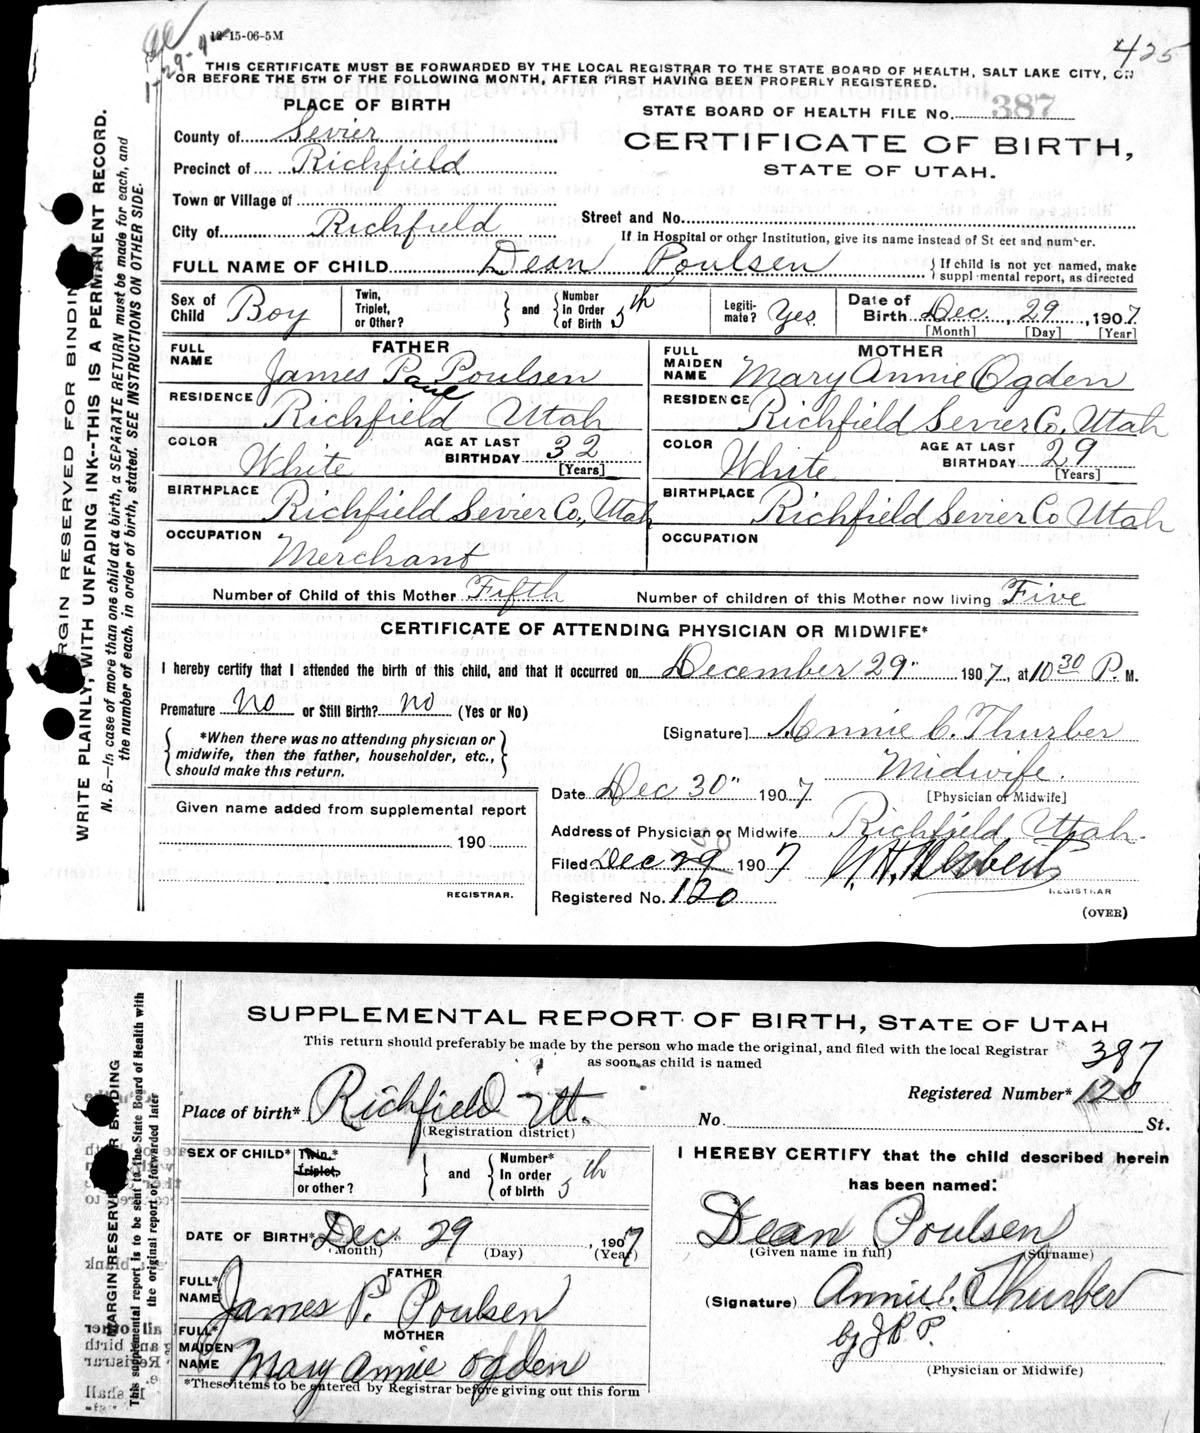 12-15-06-5M
425
THIS CERTIFICATE MUST BE FORWARDED BY THE LOCAL REGISTRAR TO THE STATE BOARD OF HEALTH, SALT LAKE CITY, ON
OR BEFORE THE 5TH OF THE FOLLOWING MONTH, AFTER FIRST HAVING BEEN PROPERLY REGISTERED.
PLACE OF BIRTH
STATE BOARD OF HEALTH FILE No. 387
County of Sevier
CERTIFICATE OF BIRTH,
Precinct of Richfield
STATE OF UTAH.
Town or Village of
City of Richfield
Street and No.
If in Hospital or other Institution, give its name instead of St eet and number.
FULL NAME OF CHILD Dean Poulsen
{ If child is not yet named, make
suppl mental report, as directed
Sex of Child Boy
Twin, Triplet, or Other?
and
Number in Order of Birth 5th
Legiti-mate? Yes.
Date of Birth Dec. 29, 1907
[Month] [Day] [Year]
FATHER
FULL NAME James Pane Poulsen
RESIDENCE Richfield Utah
COLOR White
AGE AT LAST BIRTHDAY 32
[Years]
BIRTHPLACE Richfield Sevier Co., Utah
OCCUPATION Merchant
MOTHER
FULL MAIDEN NAME Mary Annie Ogden
RESIDENCE Richfield Sevier Co, Utah
COLOR White
AGE AT LAST BIRTHDAY 29
[Years]
BIRTHPLACE Richfield Sevier Co Utah
OCCUPATION
Number of Child of this Mother Fifth
Number of children of this Mother now living Five
CERTIFICATE OF ATTENDING PHYSICIAN OR MIDWIFE*
I hereby certify that I attended the birth of this child, and that it occurred on December 29" 1907, at 10 30 P. M.
Premature no or Still Birth? no (Yes or No)
*When there was no attending physician or
midwife, then the father, householder, etc.,
should make this return.
[Signature] Annie C. Thurber
Midwife.
[Physician or Midwife]
Date Dec 30" 1907
Given name added from supplemental report
190
REGISTRAR.
Address of Physician or Midwife Richfield Utah.
Filed Dec 29 1907
REGISTRAR
Registered No. 120
(OVER)
MARGIN RESERVED FOR BINDING
WRITE PLAINLY, WITH UNFADING INK--THIS IS A PERMANENT RECORD.
N. B.—In case of more than one child at a birth, a SEPARATE RETURN must be made for each, and
the number of each, in order of birth, stated. SEE INSTRUCTIONS ON OTHER SIDE.
SUPPLEMENTAL REPORT OF BIRTH, STATE OF UTAH
This return should preferably be made by the person who made the original, and filed with the local Registrar
as soon as child is named
387
Registered Number* 120
Place of birth* Richfield Ut.
(Registration district)
No. St.
SEX OF CHILD*
Twin,* Triplet, or other?
and
Number* In order of birth 5th
DATE OF BIRTH* Dec. 29, 1907
(Month) (Day) (Year)
FATHER
FULL* NAME James P. Poulsen
MOTHER
FULL* MAIDEN NAME Mary Annie Ogden
*These items to be entered by Registrar before giving out this form
I HEREBY CERTIFY that the child described herein
has been named:
Dean Poulsen
(Given name in full) (Surname)
(Signature) Annie C. Thurber
by J P P.
(Physician or Midwife)
MARGIN RESERVED FOR BINDING
This supplemental report is to be sent to the State Board of Health with
the original report or forwarded later